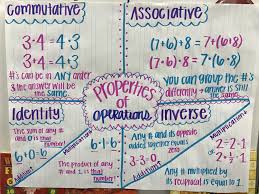 Commutative
3·4=4·3
3+4=4+3
#'s can be in ANY order
& the answer will be
the same.
Associative
(7+6)+8=7+(6+8)
(7·6)·8=7·(6·8)
YOU can group the #'s
differently + answer is still
the same.
Properties
of
operations
Identity
Addition
6+0=6
The sum of any #
and 0 is that
number!
Multiplication
6·1=6
The product of any
# and 1 is
Inverse
Addition
Any # and its opposite
added together equals
zero
3+-3=0
Multiplication
2·½=1
Any # multiplied by
its reciprocal is equal to 1.